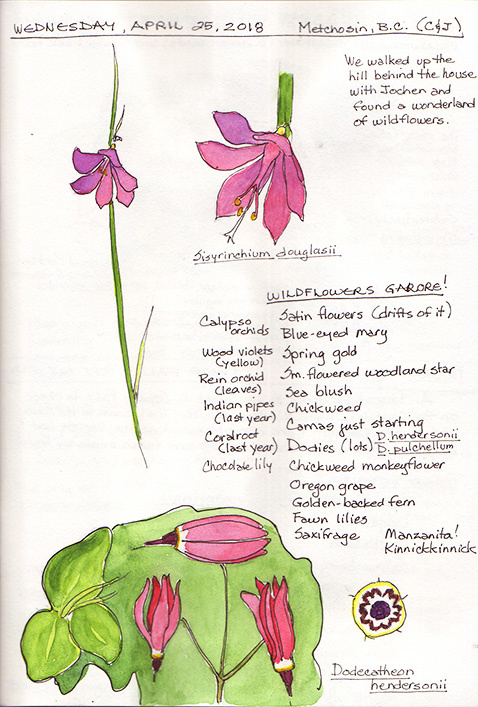 WEDNESDAY, APRIL 25, 2018 Metchosin, B.C. (C&J)
We walked up the
hill behind the house
with Jochen and
found a wonderland
of wildflowers.
Sisyrinchium douglasii
WILDFLOWERS GARORE!
Calypso
orchids
Wood violets
(yellow)
Rein orchid
(leaves)
Indian pipes
(last year)
Coralroot
(last year)
Chocolate lily
Satin flowers (drifts of it)
Blue-eyed mary
Spring gold
Sm. flowered woodland star
Sea blush
Chickweed
Camas just starting
Dodies (lots) D. hendersonii
D. pulchellum
Chickweed monkeyflower
Oregon grape
Golden-backed fern
Fawn lilies
Saxifrage Manzanita!
Kinnickkinnick
Dodecatheon
hendersonii